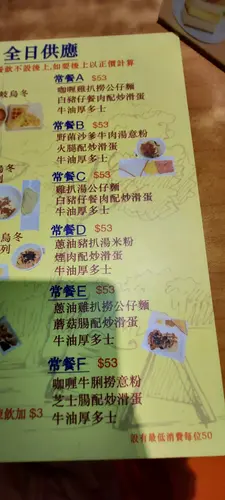 全日供應
餐飲不設後上,如要後上以正價計算
常餐A $53
咖喱雞扒撈公仔麵
白豬仔餐肉配炒滑蛋
牛油厚多士
常餐B $53
野菌沙爹牛肉湯意粉
火腿配炒滑蛋
牛油厚多士
常餐C $53
雞扒湯公仔麵
白豬仔餐肉配炒滑蛋
牛油厚多士
常餐D $53
蔥油豬扒湯米粉
煙肉配炒滑蛋
牛油厚多士
常餐E $53
蔥油雞扒撈公仔麵
蘑菇腸配炒滑蛋
牛油厚多士
常餐F $53
咖喱牛脷撈意粉
芝士腸配炒滑蛋
牛油厚多士
烏冬
烏冬
列
飲加 $3
設有最低消費每位50